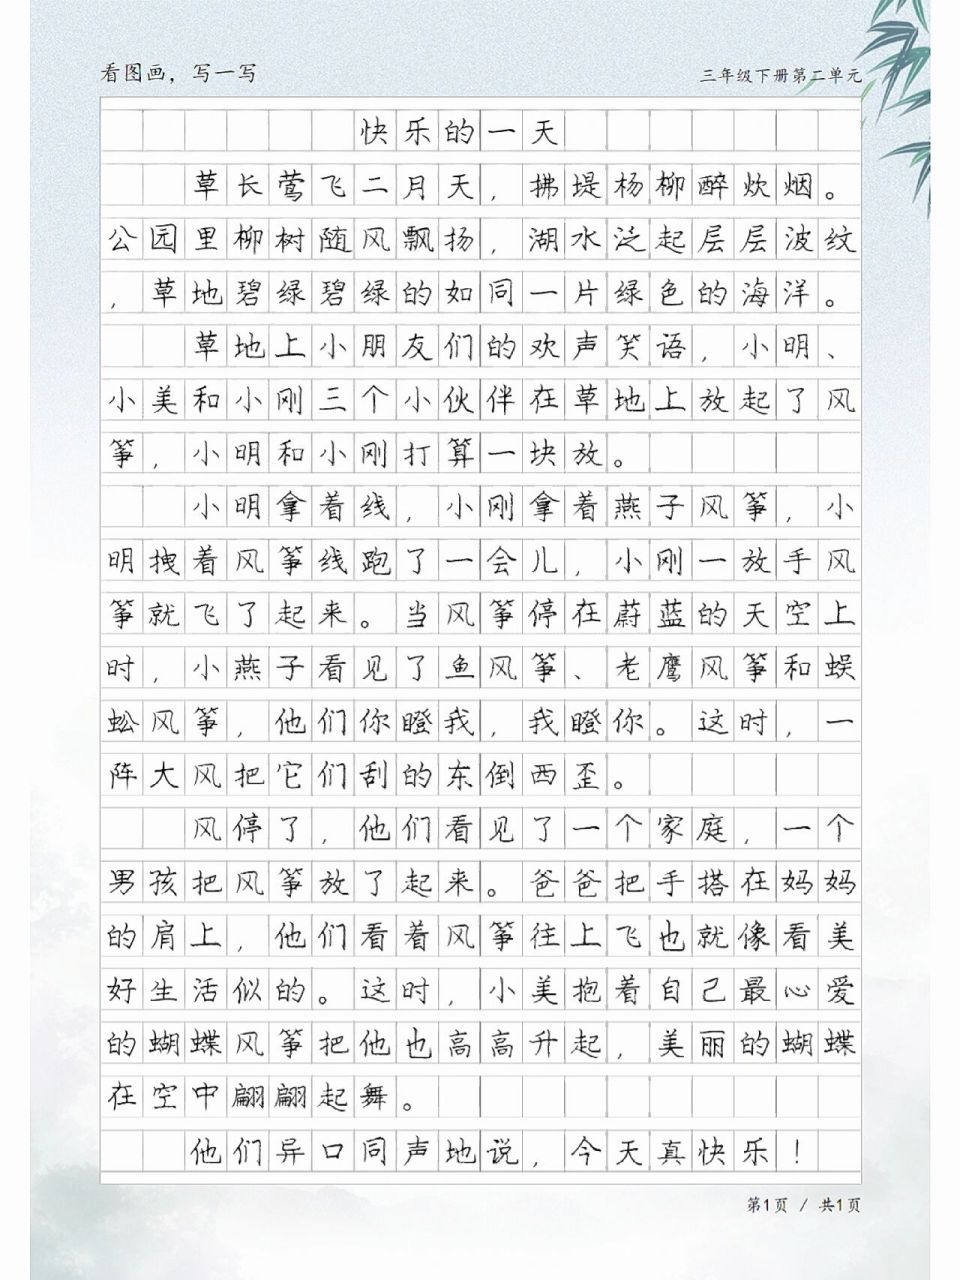 看图画，写一写
三年级下册第二单元
快乐的一天
草长莺飞二月天，拂堤杨柳醉炊烟。
公园里柳树随风飘扬，湖水泛起层层波纹
，草地碧绿碧绿的如同一片绿色的海洋。
草地上小朋友们的欢声笑语，小明、
小美和小刚三个小伙伴在草地上放起了风
筝，小明和小刚打算一块放。
小明拿着线，小刚拿着燕子风筝，小
明拽着风筝线跑了一会儿，小刚一放手风
筝就飞了起来。当风筝停在蔚蓝的天空上
时，小燕子看见了鱼风筝、老鹰风筝和蜈
蚣风筝，他们你瞪我，我瞪你。这时，一
阵大风把它们刮的东倒西歪。
风停了，他们看见了一个家庭，一个
男孩把风筝放了起来。爸爸把手搭在妈妈
的肩上，他们看着风筝往上飞也就像看美
好生活似的。这时，小美抱着自己最心爱
的蝴蝶风筝把他也高高升起，美丽的蝴蝶
在空中翩翩起舞。
他们异口同声地说，今天真快乐！
第1页 / 共1页